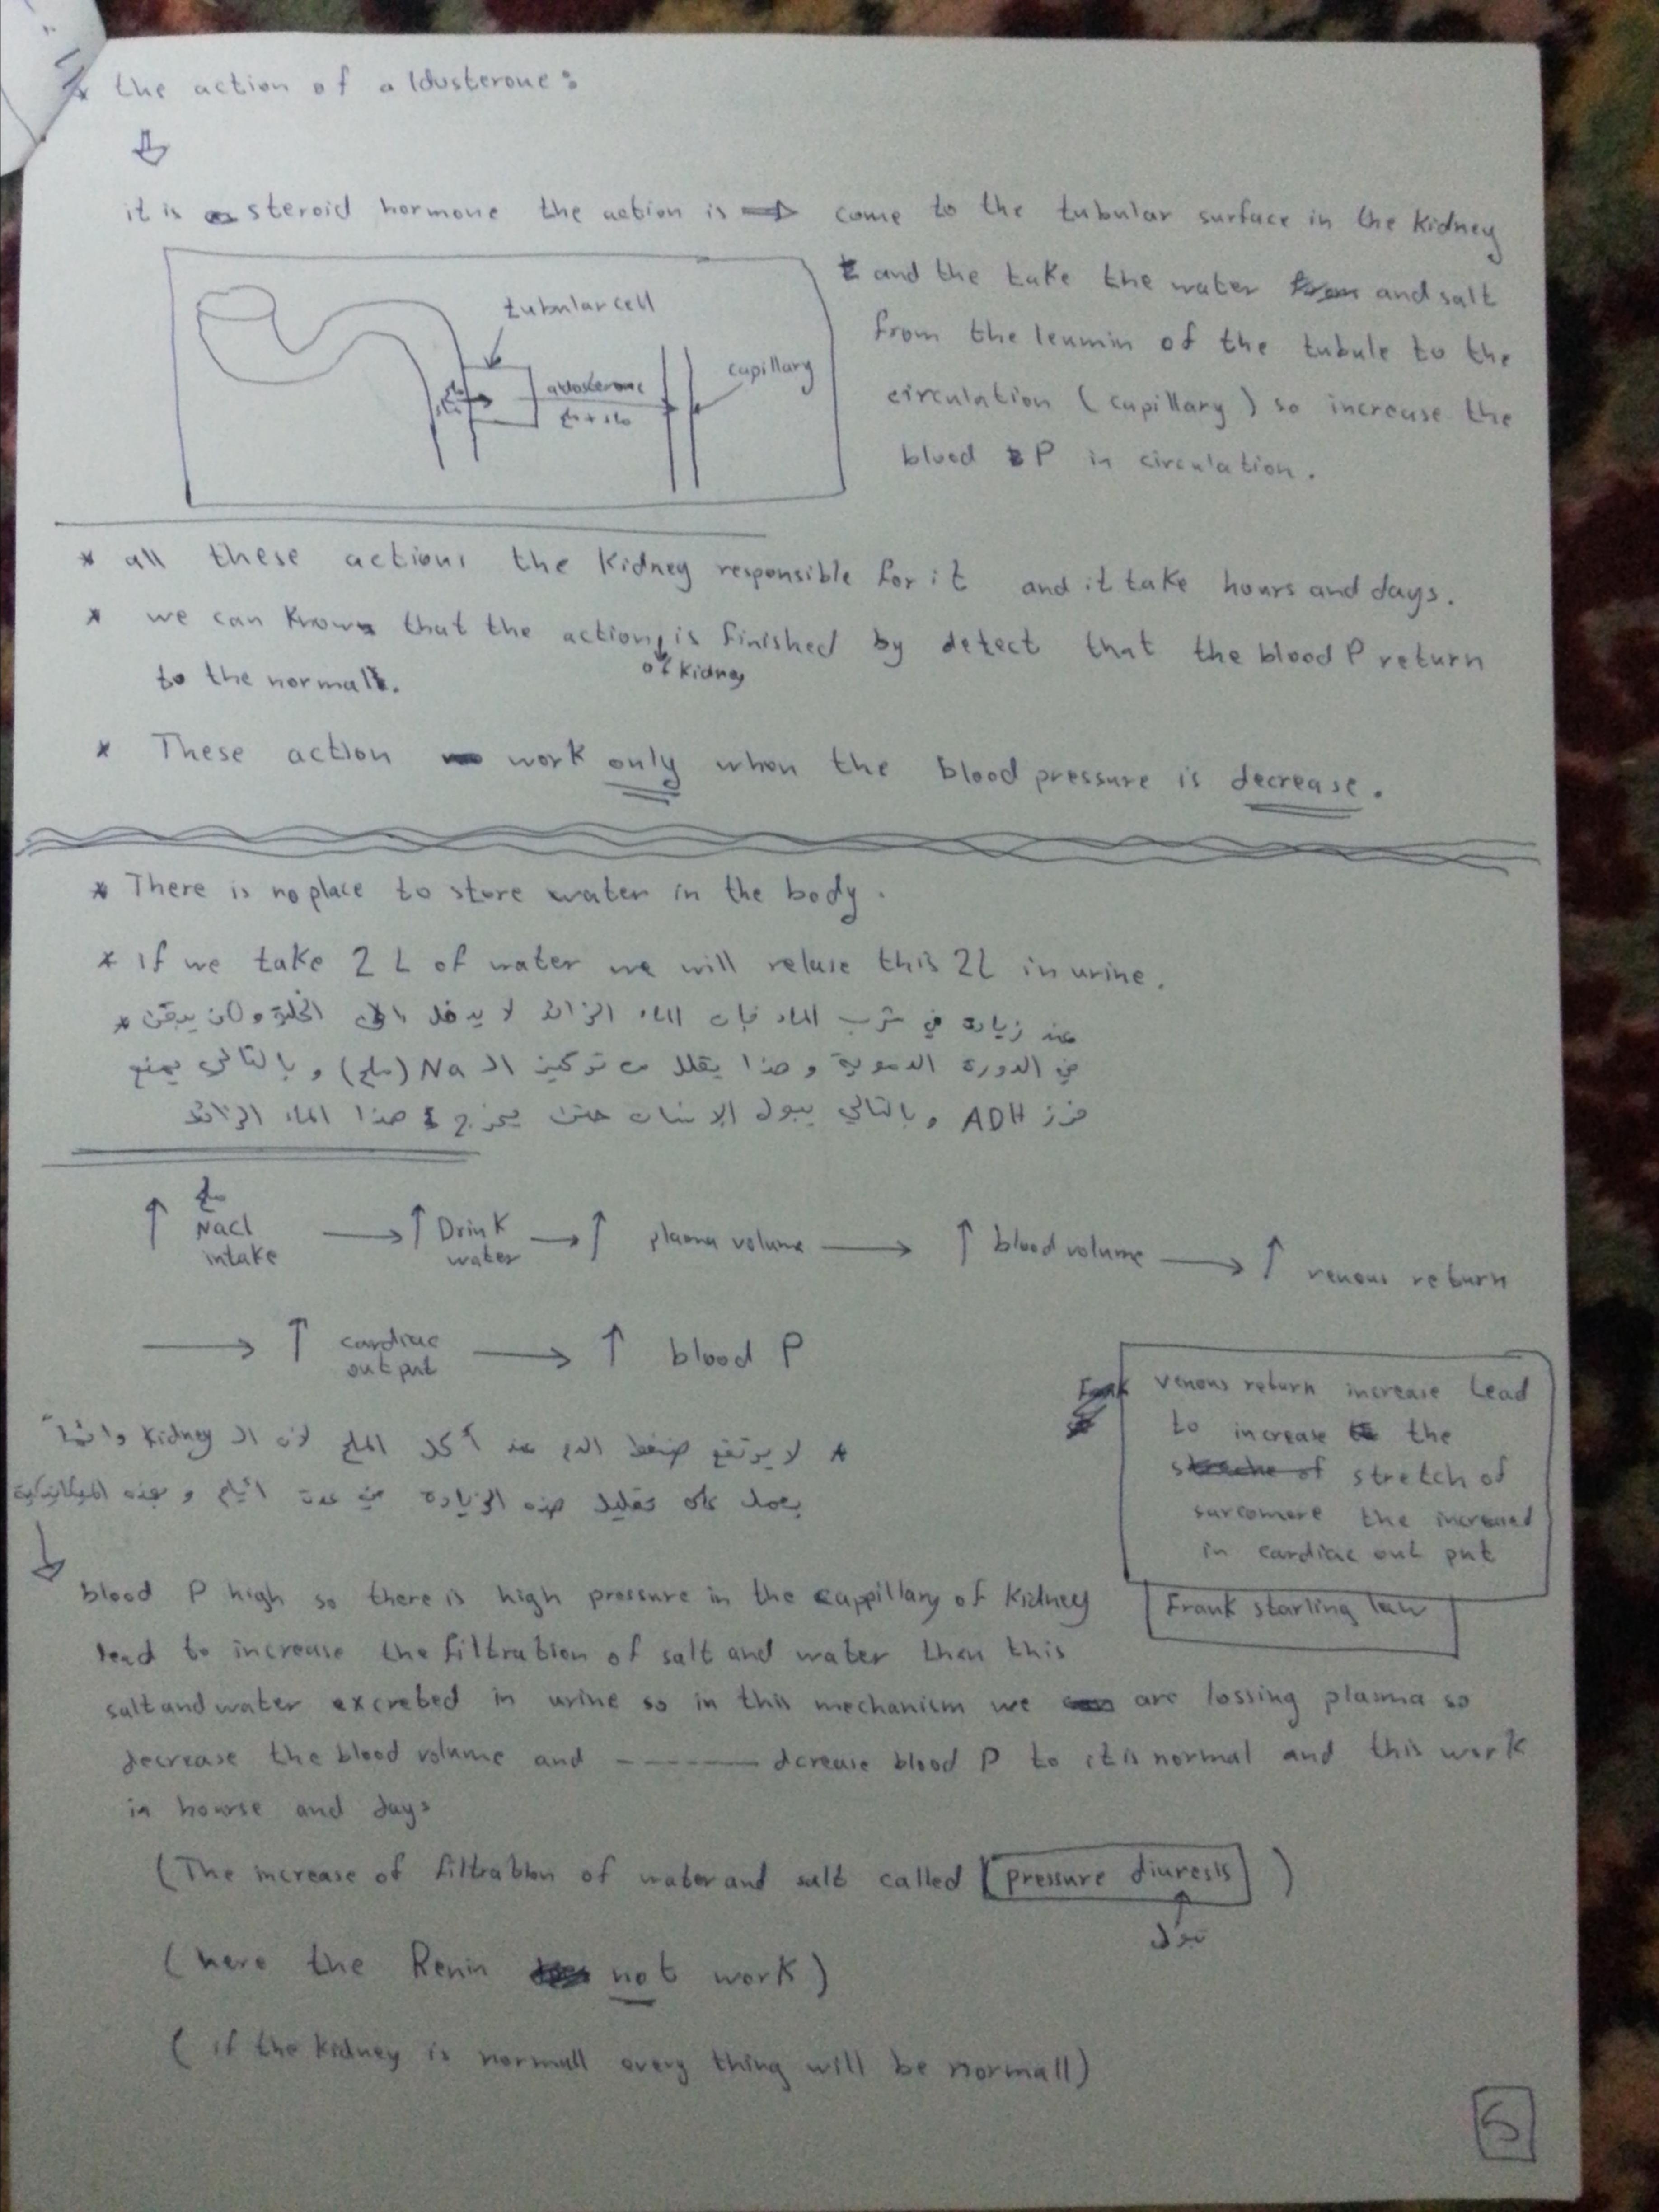 * the action of aldusterone:
it is steroid hormone the action is ⇒ come to the tubular surface in the kidney
and the take the water and salt
from the leumin of the tubule to the
circulation (capillary) so increase the
blood P in circulation.
tubular cell
capillary
aldosterone
ملح + ماء
* all these actions the kidney responsible for it and it take hours and days.
* we can know that the action is finished by detect that the blood P return
of kidney
to the normal.
* These action work only when the blood pressure is decrease.
* There is no place to store water in the body.
* If we take 2 L of water we will reluse this 2L in urine.
* عند زيادة في شرب الماء فإن الماء الزائد لا يدخل الى الخلية ولكن يبقى
في الدورة الدموية وهذا يقلل من تركيز الـ Na (ملح) وبالتالي يمنع
فرز ADH وبالتالي يبول الإنسان حتى يخرج هذا الماء الزائد
ملح
↑ Nacl intake → ↑ Drink water → ↑ plasma volume → ↑ blood volume → ↑ venous return
→ ↑ cardiac out put → ↑ blood P
venous return increase Lead
to increase the
stretch of
sarcomere the increased
in cardiac out put
Frank starling law
* لا يرتفع ضغط الدم عند أكل الملح لأن الـ kidney دائماً
يعمل على تقليل هذه الزيادة في عدة أيام وبهذه الميكانيكية
blood P high so there is high pressure in the cappillary of kidney
lead to increase the filtration of salt and water then this
salt and water excreted in urine so in this mechanism we are lossing plasma so
decrease the blood volume and ------ dcrease blood P to it is normal and this work
in hourse and days
(The increase of filtration of water and salt called [pressure diuresis])
تبول
(here the Renin not work)
(if the kidney is normall every thing will be normall)